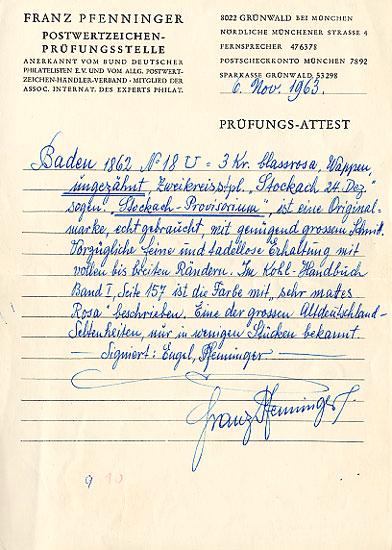 FRANZ PFENNINGER
POSTWERTZEICHEN-
PRÜFUNGSSTELLE
ANERKANNT VOM BUND DEUTSCHER
PHILATELISTEN E.V. UND VOM ALLG. POSTWERT-
ZEICHEN-HÄNDLER-VERBAND · MITGLIED DER
ASSOC. INTERNAT. DES EXPERTS PHILAT.
8022 GRÜNWALD BEI MÜNCHEN
NÖRDLICHE MÜNCHENER STRASSE 4
FERNSPRECHER 476378
POSTSCHECKKONTO MÜNCHEN 7892
SPARKASSE GRÜNWALD 53298
6. Nov. 1963.
PRÜFUNGS-ATTEST
Baden 1862 No 18 U = 3 Kr. blassrosa, Wappen,
ungezähnt, Zweikreisstpl. „Stockach 24. Dez."
sogen. „Stockach-Provisorium", ist eine Original-
marke, echt gebraucht, mit genügend grossem Schnitt.
Vorzügliche feine und tadellose Erhaltung mit
vollen bis breiten Rändern. Im Kohl-Handbuch
Band I, Seite 157 ist die Farbe mit „sehr mattes
Rosa" beschrieben. Eine der grossen Altdeutschland-
Seltenheiten, nur in wenigen Stücken bekannt.
— Signiert: Engel, Pfenninger —
Franz Pfenninger
9 10